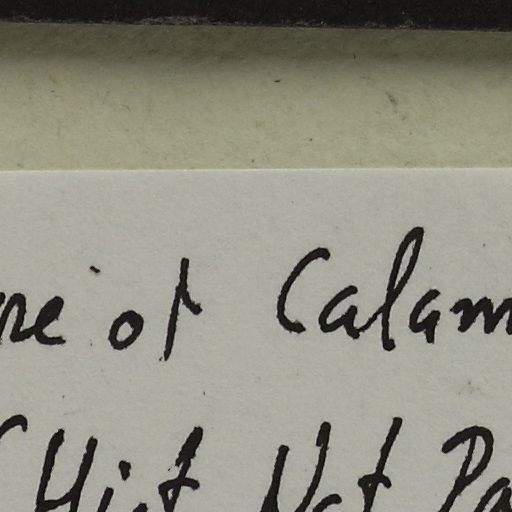 re of Calam
Hist Nat Pa